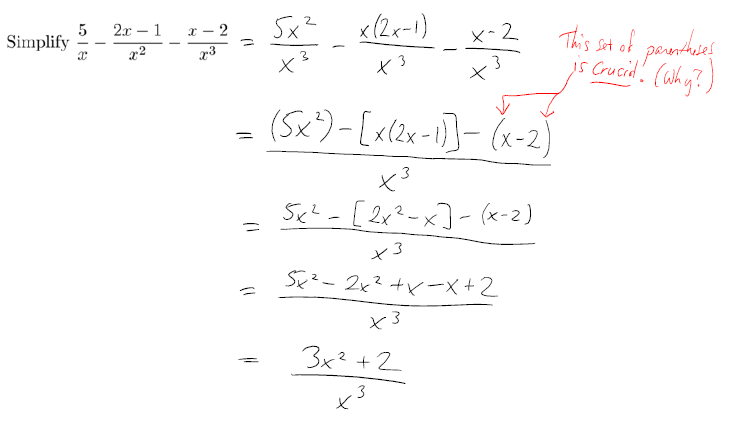 Simplify 5/x − (2x − 1)/x² − (x − 2)/x³ = 5x²/x³ − x(2x−1)/x³ − (x−2)/x³
This set of parentheses
is crucial! (Why?)
= ((5x²) − [x(2x−1)] − (x−2))/x³
= (5x² − [2x²−x] − (x−2))/x³
= (5x² − 2x² + x − x + 2)/x³
= (3x² + 2)/x³